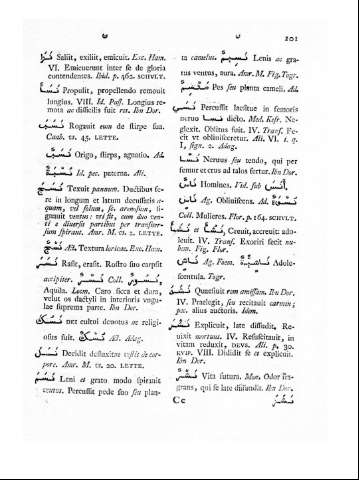 ن ن 201
نزا Saliit, exiliit, emicuit. Exc. Ham.
VI. Emicuerunt inter se de gloria
contendentes. Ibid. p. 562. SCHVLT.
نسا Propulit, propellendo removit
longius. VIII. Id. Pass. Longius re-
mota ac difficilis fuit res. Ibn Dor.
نسب Rogauit eum de stirpe sua.
Caab. vs. 45. LETTE.
نسب Origo, stirps, agnatio. Ad.
Id. pec. paterna. Ali.
نسج Texuit pannum. Ductibus fe-
re in longum et latum decussatis a-
quam, vel solum, sc. arenosum, si-
gnauit ventus:
a diuersis partibus per transuer-
sum spirant. Amr. M. vs. 2. LETTE.
نسج Ad. Textum loricae. Exc. Ham.
نسر Rasit, erasit. Rostro suo carpsit
accipiter. Coll.
Aquila. Locm. Caro sicca et dura,
velut os dactyli in interioris vngu-
lae suprema parte. Ibn Dor.
نسك nec cultui deuotus ac religi-
osus fuit. نسك Ad. Abag.
نسل Decidit defluxitue vestis de cor-
pore. Amr. M. vs. 20. LETTE.
نسم Leni et grato modo spirauit
ventus. Percussit pede suo seu plan-
ta camelus. نسيم Lenis ac gra-
tus ventus, aura. Amr. M. Fig. Togr.
منسم Pes seu planta cameli. Ad.
نسي Percussit laesitue in femoris
neruo نسا dicto. Med. Kesr. Ne-
glexit. Oblitus fuit. IV. Transf. Fe-
cit vt obliuisceretur. Ali. VI. i. q.
I, sign. 2. Abag.
نسا Neruus seu tendo, qui per
femur et crus ad talos fertur. Ibn Dor.
ناس Homines. Vid. sub انس.
ناس Ag. Obliuiscens. Ad.
Coll. Mulieres. Flor. p. 164. SCHVLT.
نشا et نشا, Creuit, accreuit: ado-
leuit. IV. Transf. Exoriri fecit nu-
bem. Fig. Flor.
ناش Ag. Foem. ناشية Adole-
scentula. Togr.
نشد Quaesiuit rem amissam. Ibn Dor.
IV. Praelegit, seu recitauit carmen;
px. alius auctoris. Idem.
نشر Explicuit, late diffudit, Re-
uixit mortuus. IV. Resuscitauit, in
vitam reduxit, DEVS. Ali. p. 30.
VIII. Dididit se et explicuit.
Ibn Dor.
نشر Vita futura. Mot. Odor fra-
grans, qui se late diffundit. Ibn Dor.
Cc نشر